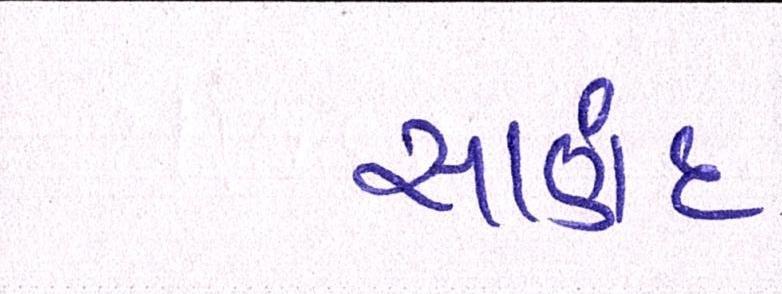 સાણંદ